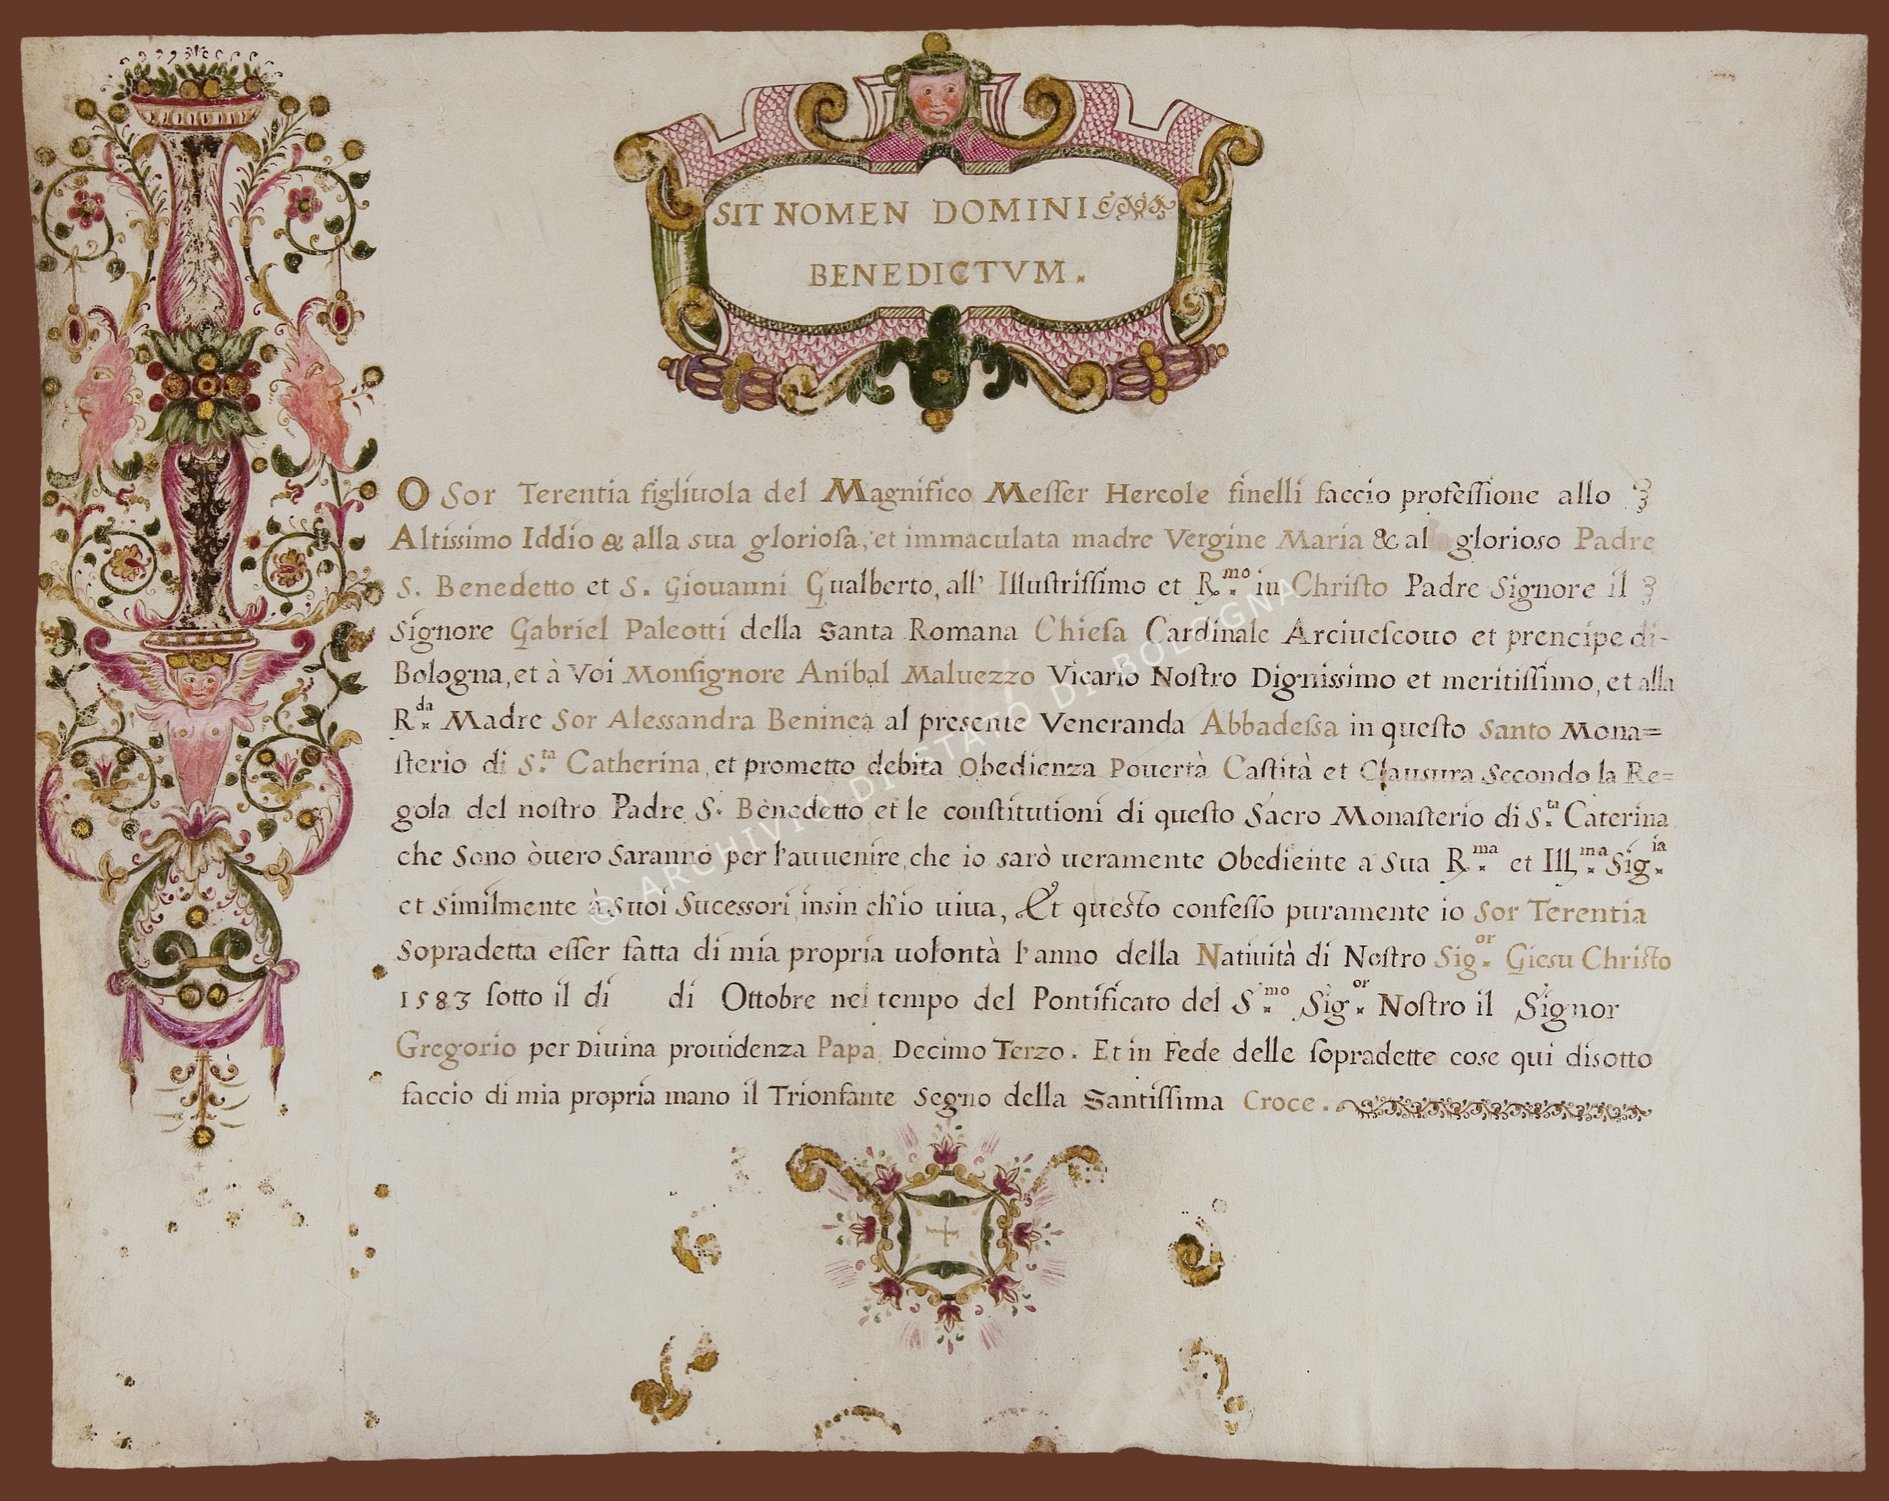 SIT NOMEN DOMINI
BENEDICTVM.
O Sor Terentia figliuola del Magnifico Messer Hercole finelli faccio professione allo
Altissimo Iddio & alla sua gloriosa, et immaculata madre Vergine Maria & al glorioso Padre
S. Benedetto et S. Giouanni Gualberto, all' Illustrissimo et R.mo in Christo Padre Signore il
Signore Gabriel Paleotti della Santa Romana Chiesa Cardinale Arciuescouo et prencipe di
Bologna, et à Voi Monsignore Anibal Maluezzo Vicario Nostro Dignissimo et meritissimo, et alla
R.da Madre Sor Alessandra Beninca al presente Veneranda Abbadessa in questo Santo Mona=
sterio di S.ta Catherina, et prometto debita Obedienza Pouertà Castità et Clausura Secondo la Re=
gola del nostro Padre S. Benedetto et le constitutioni di questo Sacro Monasterio di S.ta Caterina
che Sono òuero Saranno per l'auuenire, che io sarò ueramente Obediente a Sua R.ma et Ill.ma Sig.ia
et Similmente à Suoi Sucessori insin ch'io uiua, Et questo confesso puramente io Sor Terentia
Sopradetta esser fatta di mia propria uolontà l'anno della Natiuità di Nostro Sig.or Giesu Christo
1583 sotto il di di Ottobre nel tempo del Pontificato del S.mo Sig.or Nostro il Signor
Gregorio per Diuina prouidenza Papa Decimo Terzo. Et in Fede delle sopradette cose qui disotto
faccio di mia propria mano il Trionfante Segno della Santissima Croce.
© ARCHIVIO DI STATO DI BOLOGNA